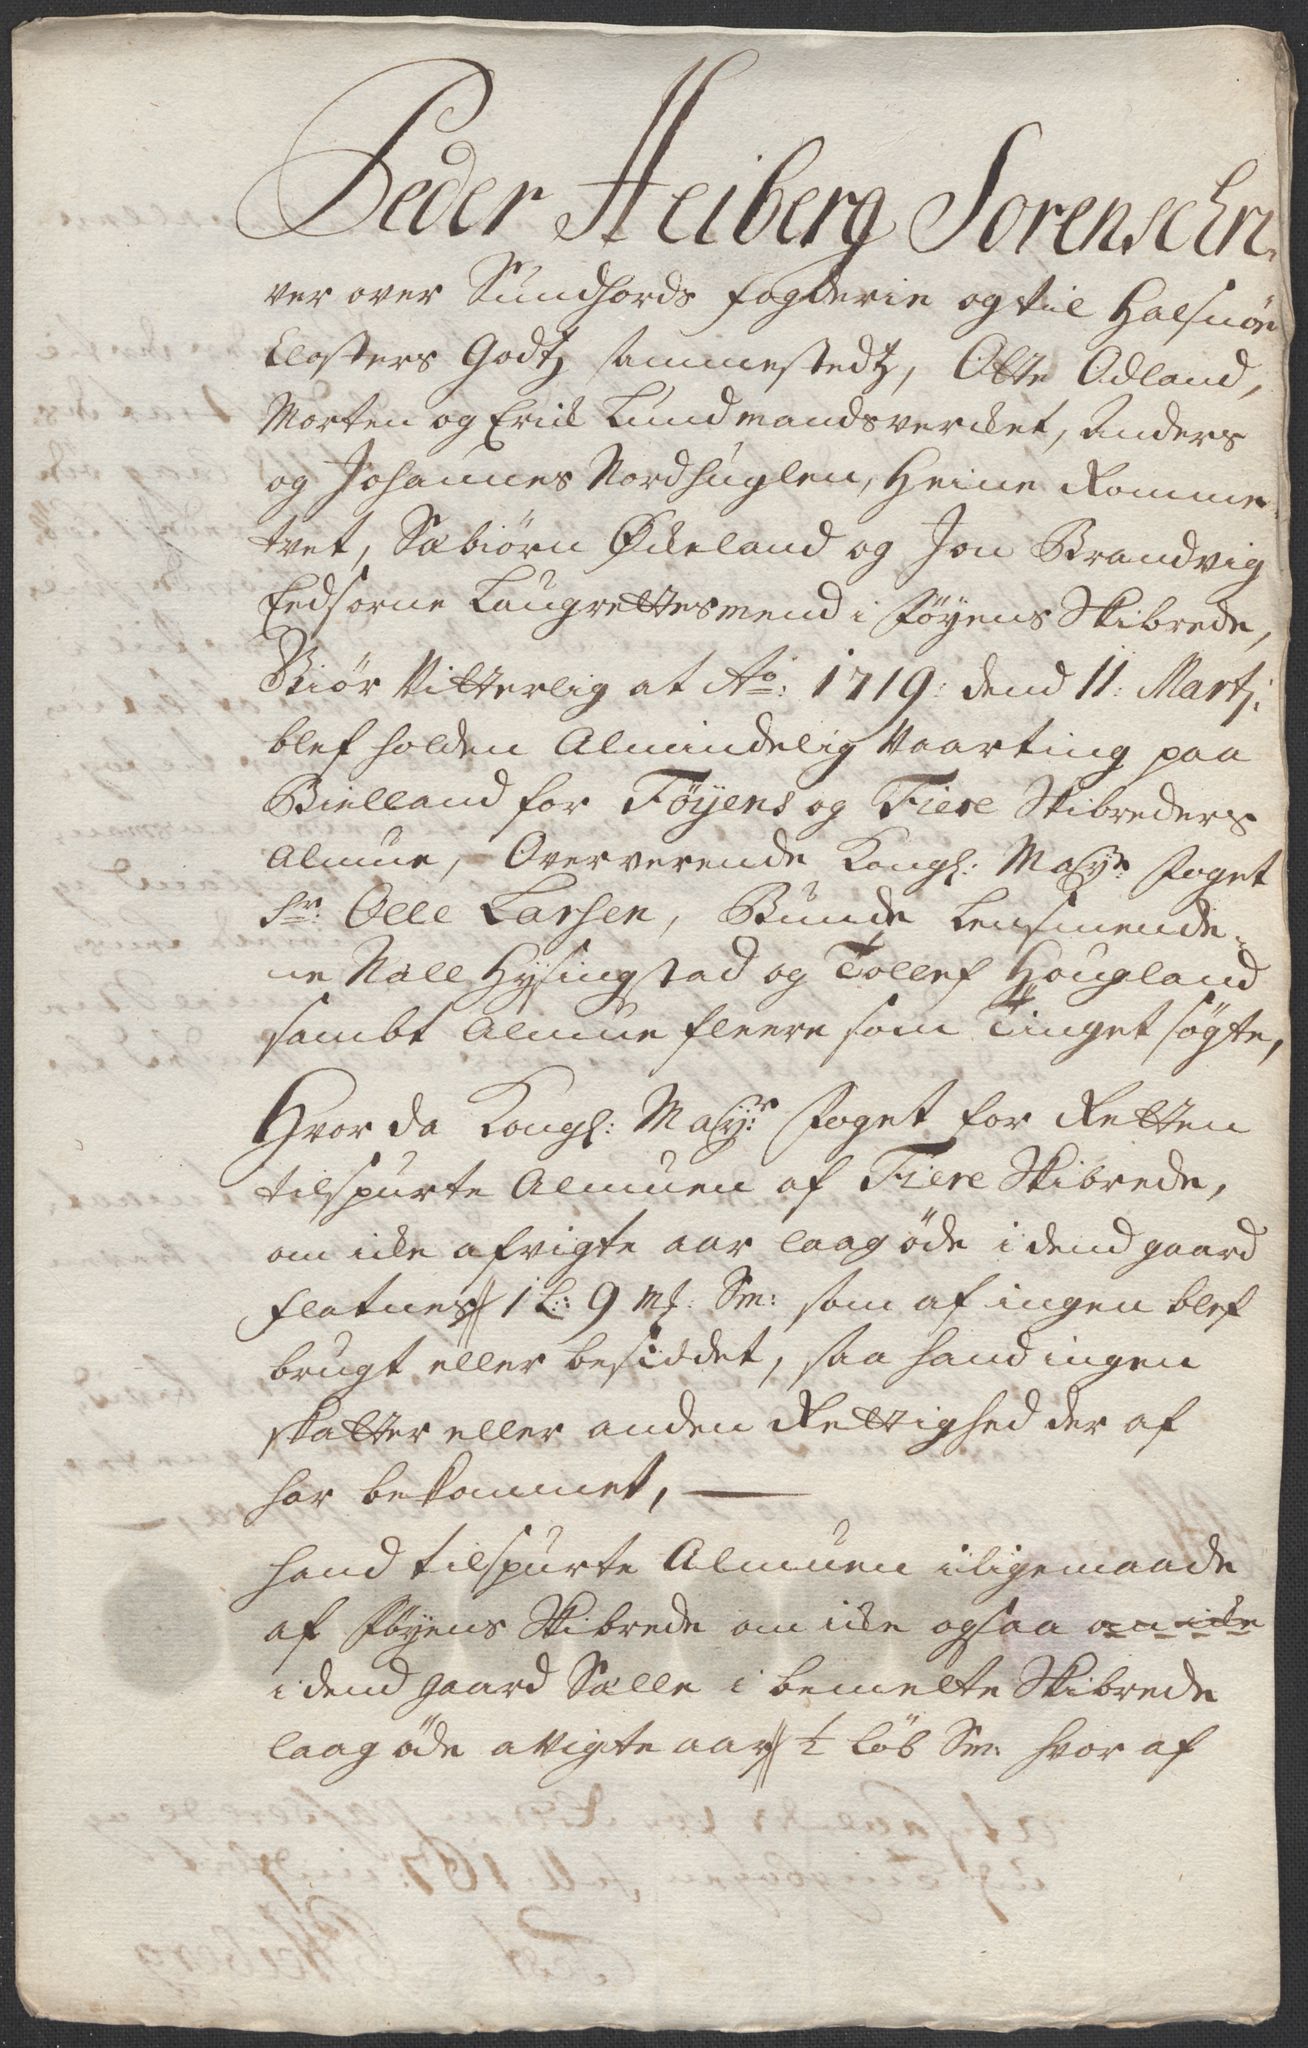 Peder Heiberg Sorenschri-
ver over Sundhords fogderie og til Halsnöe
Closters Godtz sammestedtz, Otte Odland,
Morten og Erick Lundmandsverchet, Anders
og Johannes Nordhuglen, Heine Romme-
tvet, Sæbiörn Økeland og Jon Brandvig
Eedsorne Laugrettesmend i Föyens Skibrede,
Giör Vitterlig at Aō: 1719: dend 11: Martj:
blef holden Almindelig Vaarting paa
Bielland for Föyens og Fiere Skibreders
Almue, Oververende Kongl: Maÿts: Foget
Sr: Olle Larsen, Bunde Lensmende-
ne Nall Hysingstad og Tollef Hougland
sambt Almue fleere som Tinget sögte,
Hvor da Kongl: Maÿts: Foget for Retten
tilspurte Almuen af Fiere Skibrede,
om icke afvigte aar laag öde i dend gaard
Flatnes 1 L: 9 mk: Sm: som af ingen blef
brugt eller besiddet, saa hand ingen
skatter eller anden Rettighed der af
har bekommet,
hand tilspurte Almuen iligemaade
af Föyens Skibrede om icke ogsaa om icke
i dend gaard Sælle i bemelte Skibrede
laag öde avigte aar ½ löb Sm: hvor af